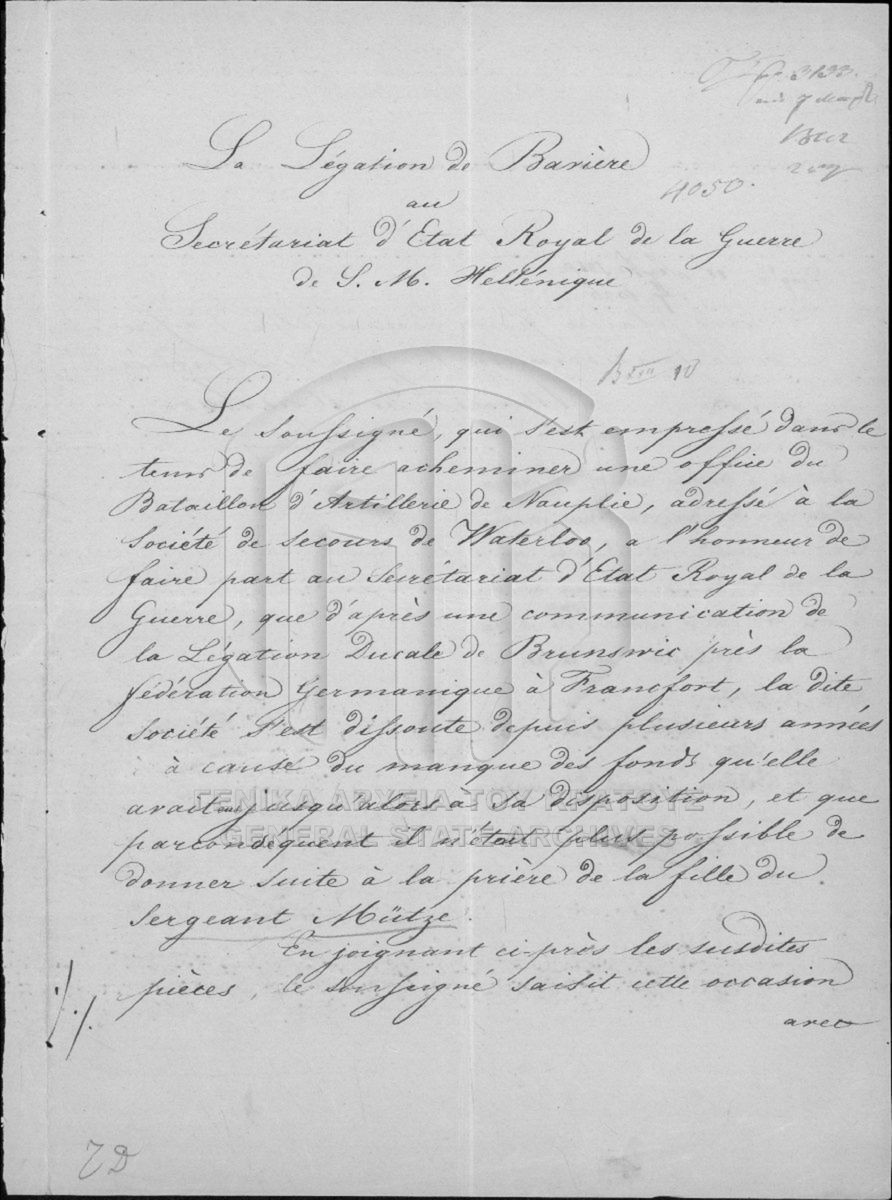 3133.
La Légation de Bavière
4050.
au
Secrétariat d'Etat Royal de la Guerre
de S. M. Hellénique
B XIII 10
Le soussigné, qui s'est empressé dans le
tems de faire acheminer une office du
Bataillon d'Artillerie de Nauplie, adressé à la
Société de secours de Waterloo, a l'honneur de
faire part au Secrétariat d'Etat Royal de la
Guerre, que d'après une communication de
la Légation Ducale de Brunswic près la
fédération Germanique à Francfort, la dite
Société s'est dissoute depuis plusieurs années
à cause du manque des fonds qu'elle
avait eus jusqu'alors à sa disposition, et que
parconséquent il n'était plus possible de
donner suite à la prière de la fille du
Sergeant Mütze.
En joignant ci-près les susdites
pièces, le soussigné saisit cette occasion
avec
ΓΕΝΙΚΑ ΑΡΧΕΙΑ ΤΟΥ ΚΡΑΤΟΥΣ
GENERAL STATE ARCHIVES